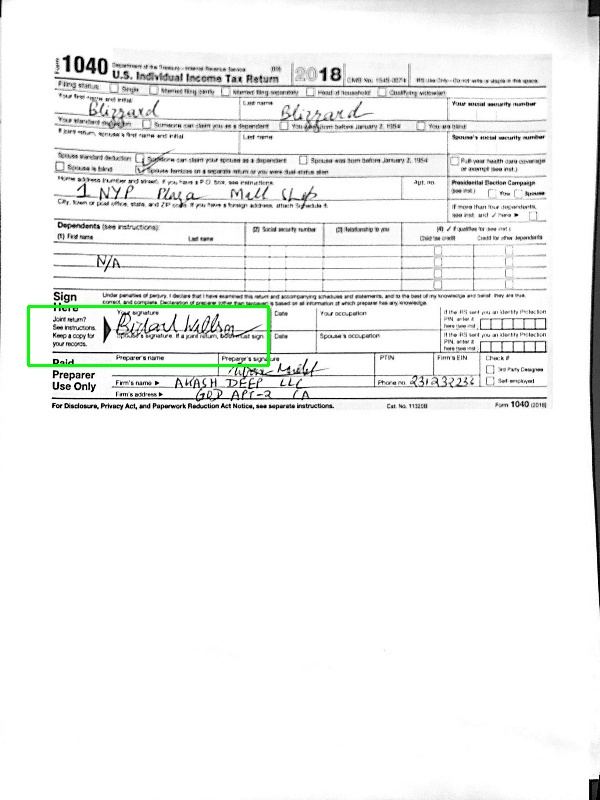 Form 1040 Department of the Treasury—Internal Revenue Service (99)
U.S. Individual Income Tax Return 2018 OMB No. 1545-0074 IRS Use Only—Do not write or staple in this space.
Filing status: Single Married filing jointly Married filing separately Head of household Qualifying widow(er)
Your first name and initial Last name Your social security number
Blizzard Blizzard
Your standard deduction: Someone can claim you as a dependent You were born before January 2, 1954 You are blind
If joint return, spouse's first name and initial Last name Spouse's social security number
Spouse standard deduction: Someone can claim your spouse as a dependent Spouse was born before January 2, 1954 Full-year health care coverage
Spouse is blind Spouse itemizes on a separate return or you were dual-status alien or exempt (see inst.)
Home address (number and street). If you have a P.O. box, see instructions. Apt. no. Presidential Election Campaign
1 NYP Plaza Mall (see inst.) You Spouse
City, town or post office, state, and ZIP code. If you have a foreign address, attach Schedule 6. If more than four dependents,
see inst. and ✓ here ►
Dependents (see instructions): (2) Social security number (3) Relationship to you (4) ✓ if qualifies for (see inst.):
(1) First name Last name Child tax credit Credit for other dependents
N/A
Sign Here Under penalties of perjury, I declare that I have examined this return and accompanying schedules and statements, and to the best of my knowledge and belief, they are true,
correct, and complete. Declaration of preparer (other than taxpayer) is based on all information of which preparer has any knowledge.
Joint return? See instructions. Keep a copy for your records.
Your signature Date Your occupation If the IRS sent you an Identity Protection PIN, enter it here (see inst.)
Spouse's signature. If a joint return, both must sign. Date Spouse's occupation If the IRS sent you an Identity Protection PIN, enter it here (see inst.)
Paid Preparer Use Only
Preparer's name Preparer's signature PTIN Firm's EIN Check if:
3rd Party Designee
Firm's name ► AKASH DEEP LLC Phone no. 231232236 Self-employed
Firm's address ► GRD APT-2 CA
For Disclosure, Privacy Act, and Paperwork Reduction Act Notice, see separate instructions. Cat. No. 11320B Form 1040 (2018)